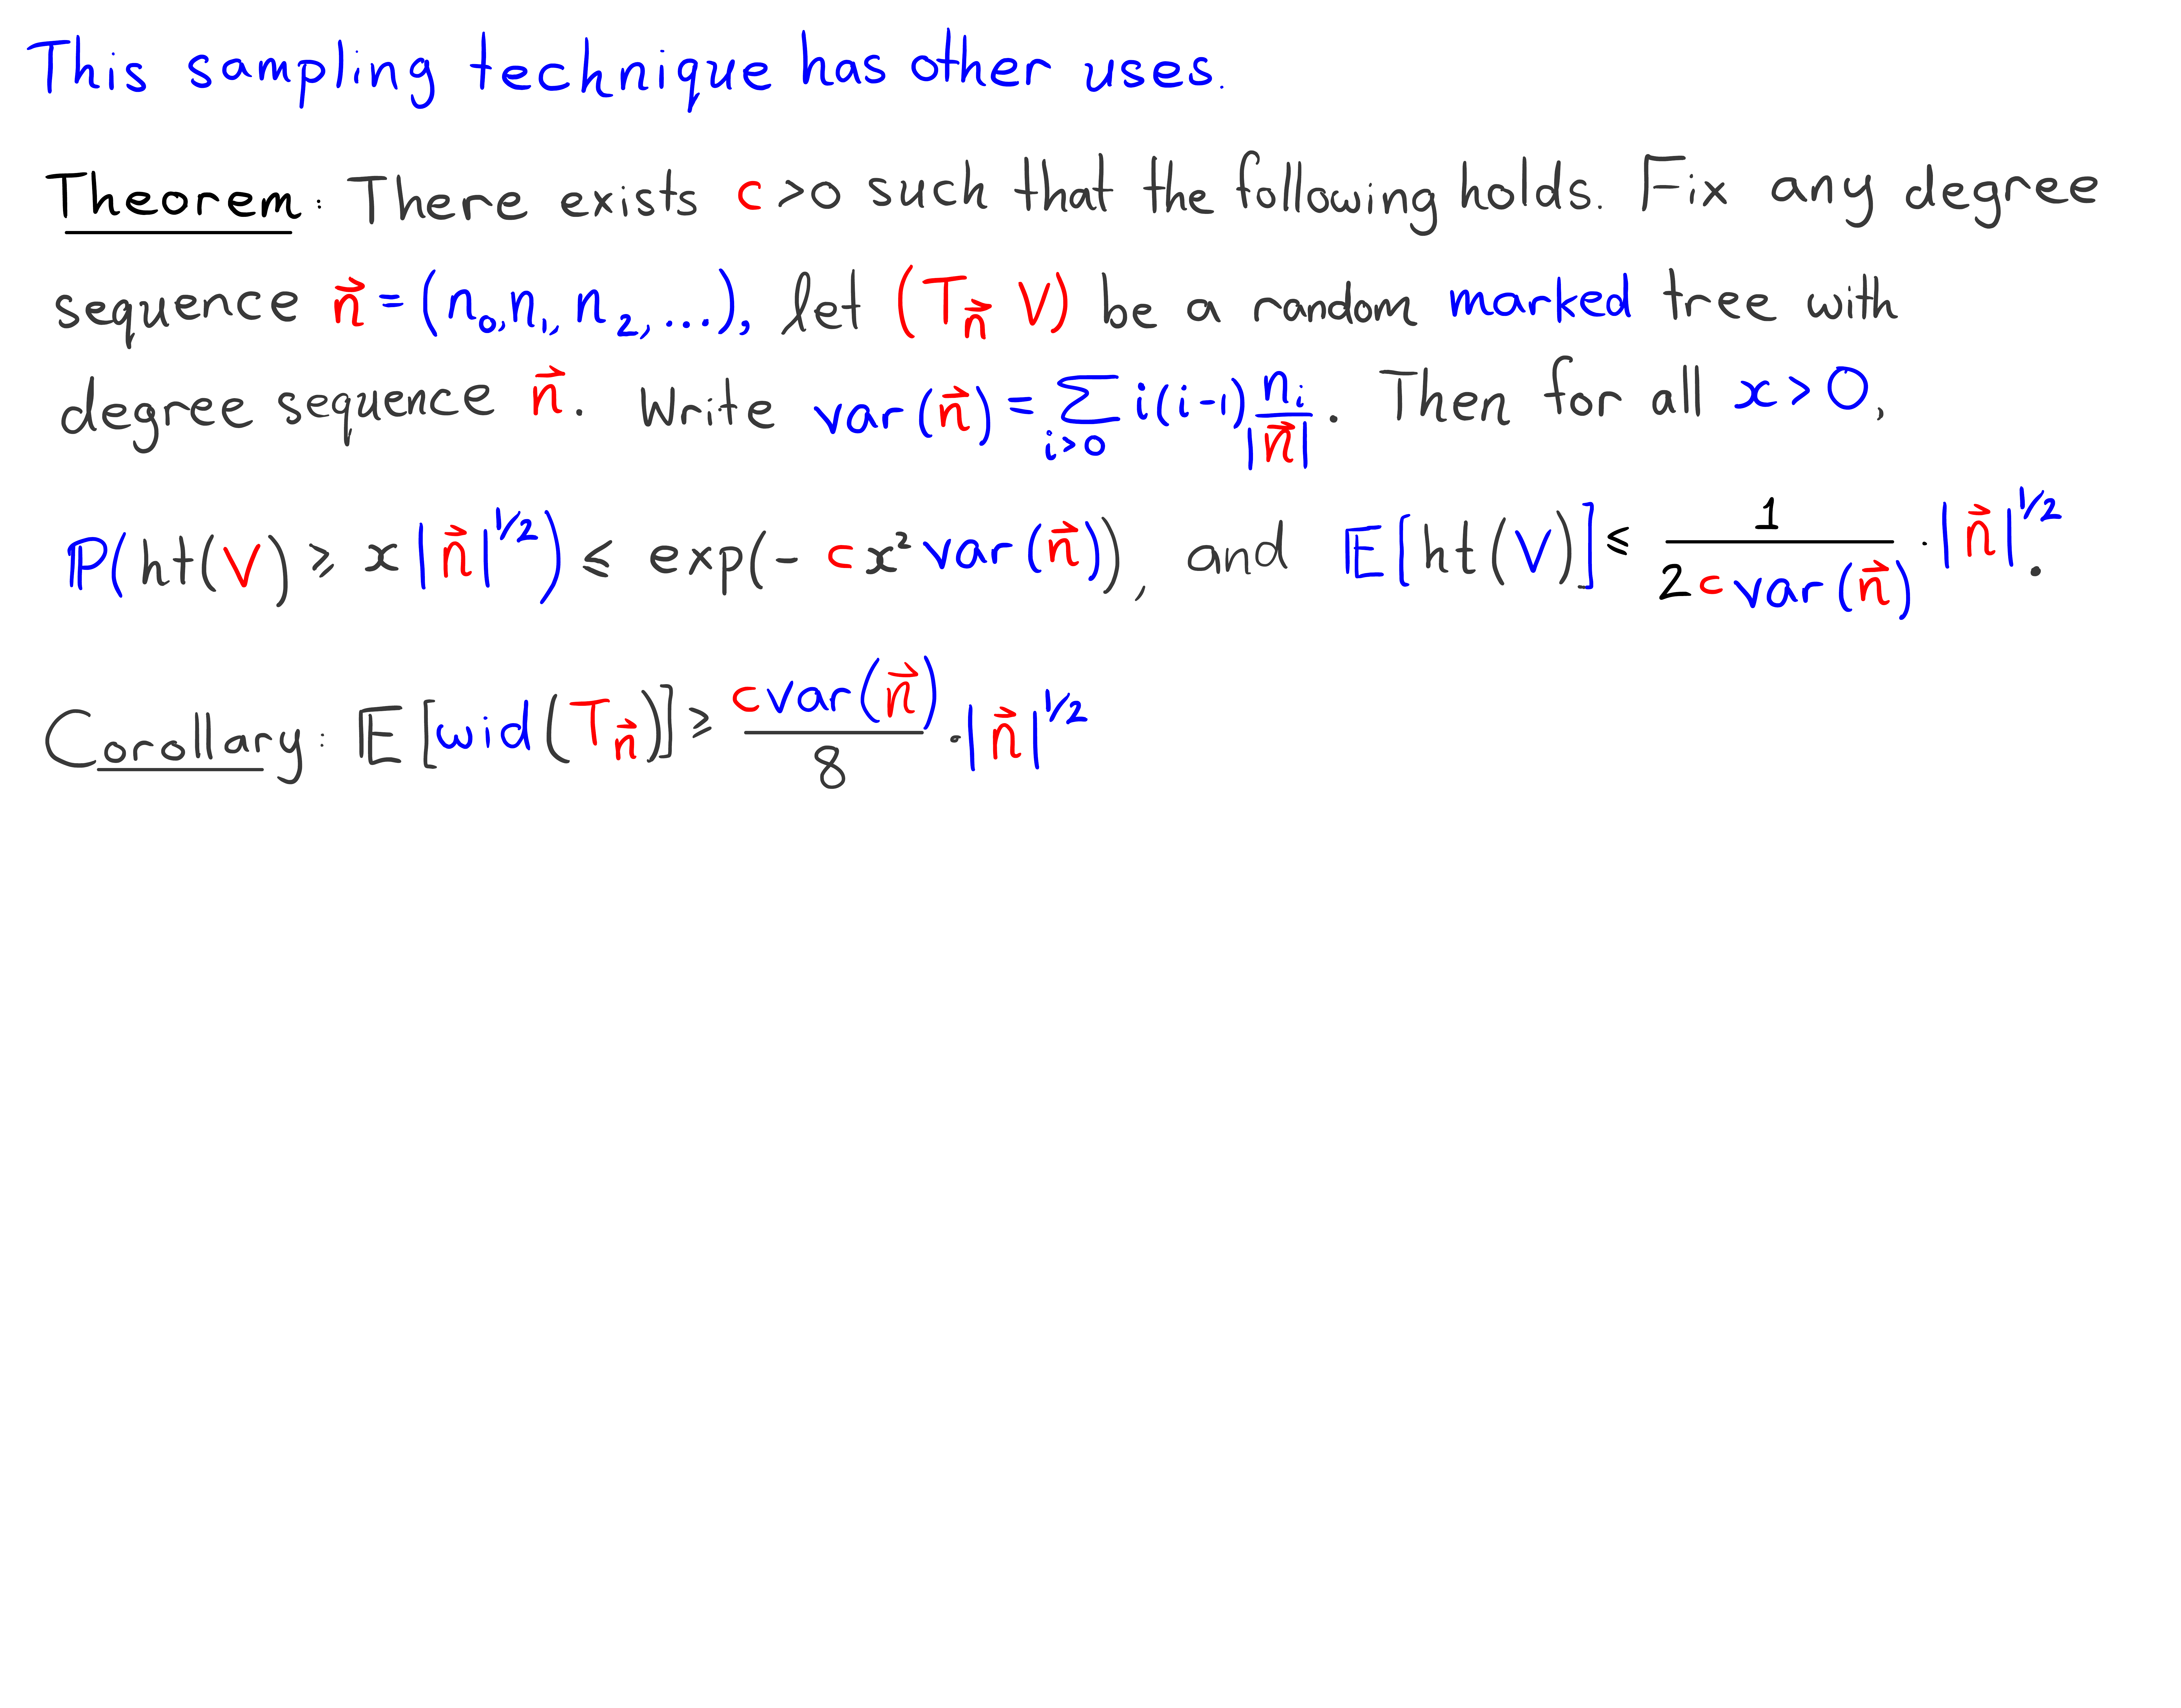 This sampling technique has other uses.
Theorem: There exists c >0 such that the following holds. Fix any degree
sequence n⃗ = (n₀, n₁, n₂, ...), let (T_n⃗, V) be a random marked tree with
degree sequence n⃗. Write var(n⃗) = ∑_{i>0} i(i-1) n_i/|n⃗|. Then for all x > 0,
P(ht(V) ≥ x|n⃗|^{1/2}) ≤ exp(- c x² var(n⃗)), and E[ht(V)] ≤ 1/(2 c var(n⃗)) · |n⃗|^{1/2}.
Corollary: E[wid(T_n⃗)] ≥ c var(n⃗)/8 · |n⃗|^{1/2}